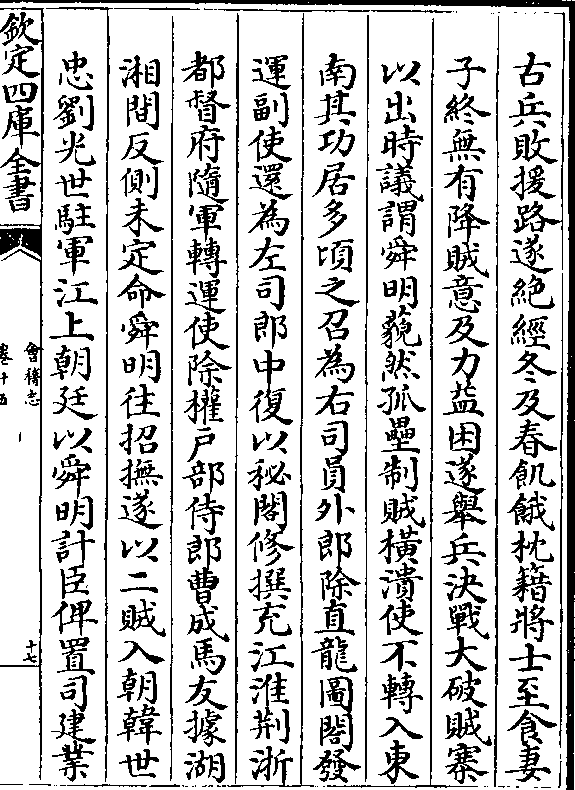 古兵敗援路遂絶經冬及春飢餓枕籍將士至食妻
子終無有降賊意及力益困遂舉兵決戰大破賊寨
以出時議謂舜明藐然孤壘制賊横潰使不轉入東
南其功居多頃之召為右司員外郎除直龍圖閣發
運副使還為左司郎中復以秘閣修撰充江淮荆浙
都督府隨軍轉運使除權戸部侍郎曹成馬友據湖
湘間反側未定命舜明往招撫遂以二賊入朝韓世
忠劉光世駐軍江上朝廷以舜明計臣俾置司建業
欽定四庫全書
會稽志
卷十五
十七